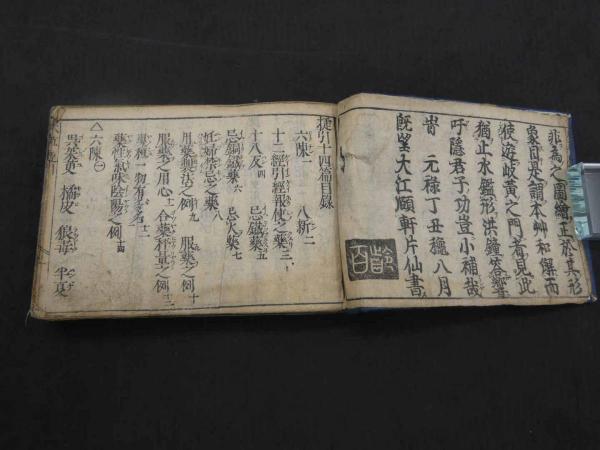 非為之圖繪正於其形
象因是謂本艸和觧而
猴遊岐黄之門者晃此
猶止水鑑形洪鐘答響
吁隠君子功豈小補哉
旹元禄丁丑穐八月
既望大江頤軒片仙書
齢百
捷引十四篇目録
六陳一 八新二
十二經引經報使之藥三
十八反四 忌磁藥五
忌銅鐵藥六 忌火藥七
妊婦禁忌之藥八
用藥製法之例九 服藥之例十
服藥之用心 合藥秤量之例十二
藥種一物有多名十三
藥性氣味陰陽之例十四
△六陳一
呉茱萸 橘皮 狼毒 半夏